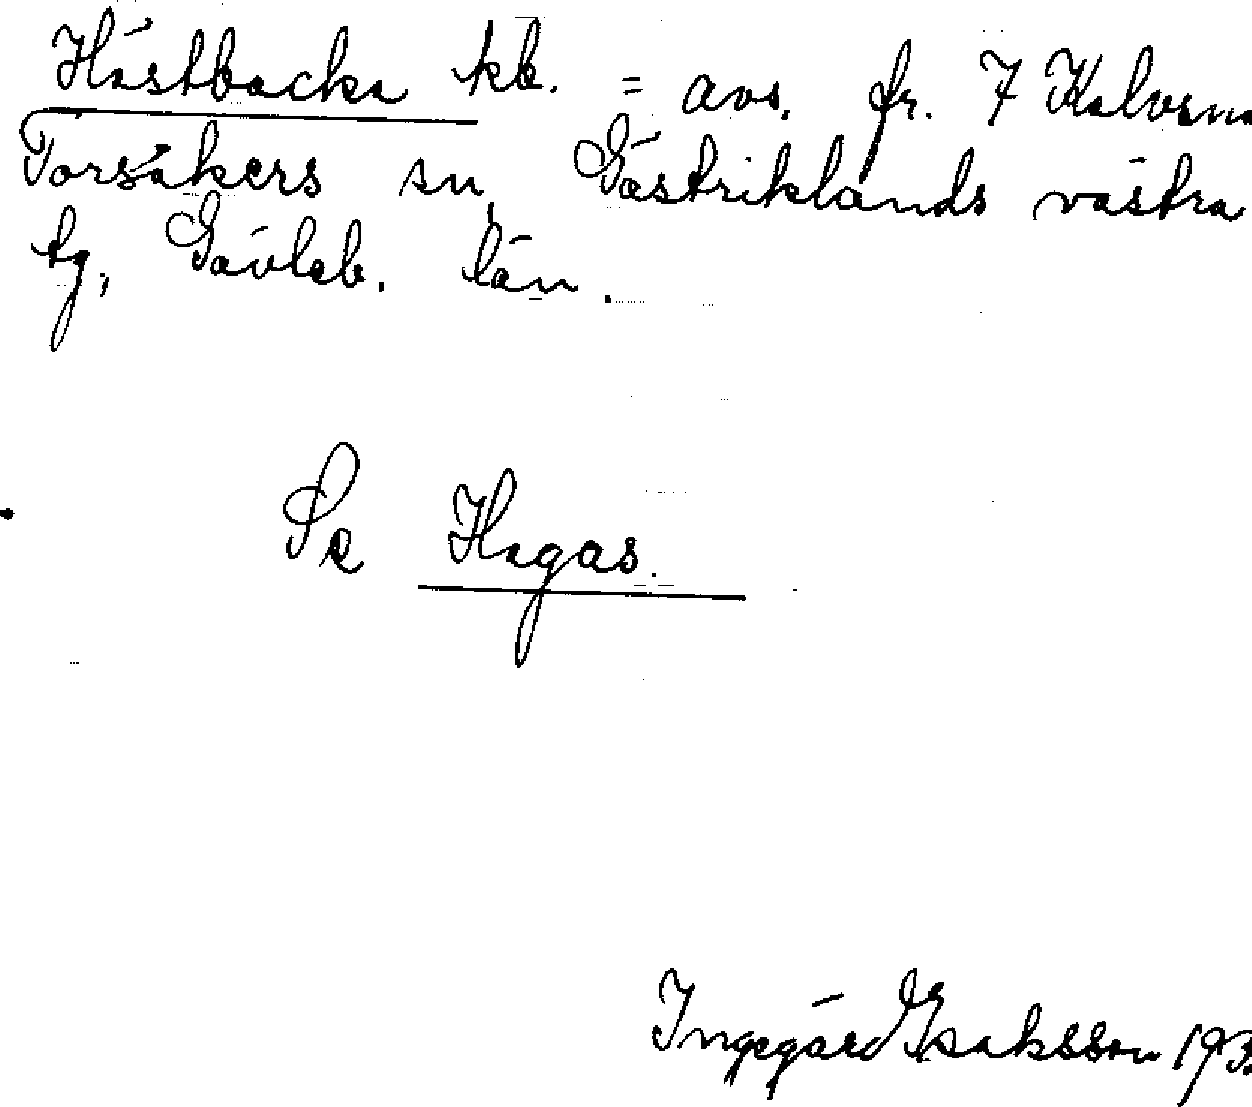 Hästbacka kb. = avs. fr. 7 Kalvsnä
Torsåkers sn, Gästriklands västra
tg, Gävleb. län.
Se Hagas.
Ingegärd Isaksson 193